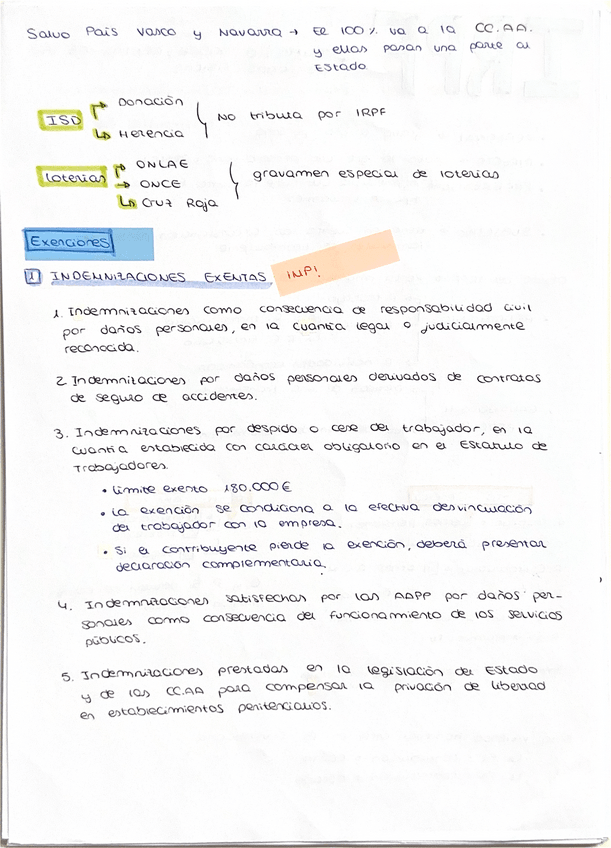 Salvo País Vasco y Navarra → El 100% va a la CC.AA.
y ellas pasan una parte al
Estado
ISD → Donación
↳ Herencia
No tributa por IRPF
loterías → ONLAE
→ ONCE
↳ Cruz Roja
gravamen especial de loterías
Exenciones
1 INDEMNIZACIONES EXENTAS IMP!
1. Indemnizaciones como consecuencia de responsabilidad civil
por daños personales, en la cuantía legal o judicialmente
reconocida.
2 Indemnizaciones por daños personales derivados de contratos
de seguro de accidentes.
3. Indemnizaciones por despido o cese del trabajador, en la
cuantía establecida con carácter obligatorio en el Estatuto de
Trabajadores.
• límite exento 180.000 €
• La exención se condiciona a la efectiva desvinculación
del trabajador con la empresa.
• Si el contribuyente pierde la exención, deberá presentar
declaración complementaria.
4. Indemnizaciones satisfechas por las AAPP por daños per-
sonales como consecuencia del funcionamiento de los servicios
públicos.
5. Indemnizaciones prestadas en la legislación del Estado
y de las CC.AA para compensar la privación de libertad
en establecimientos penitenciarios.